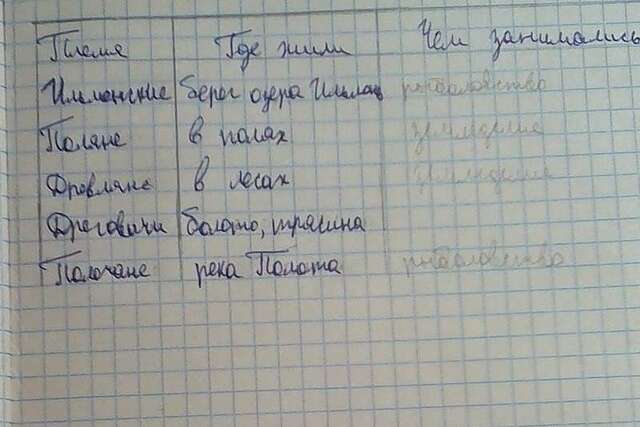 Племя Где жили Чем занимались
Ильменские берег озера Ильмень рыболовство
Поляне в полях земледелие
Древляне в лесах земледелие
Дреговичи болото, трясина
Полочане река Полота рыболовство